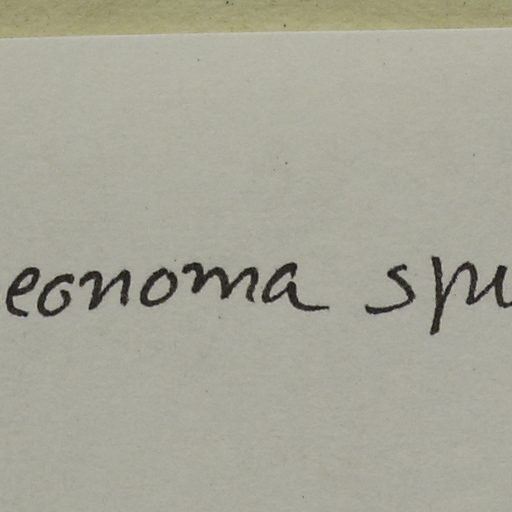 eonoma spu